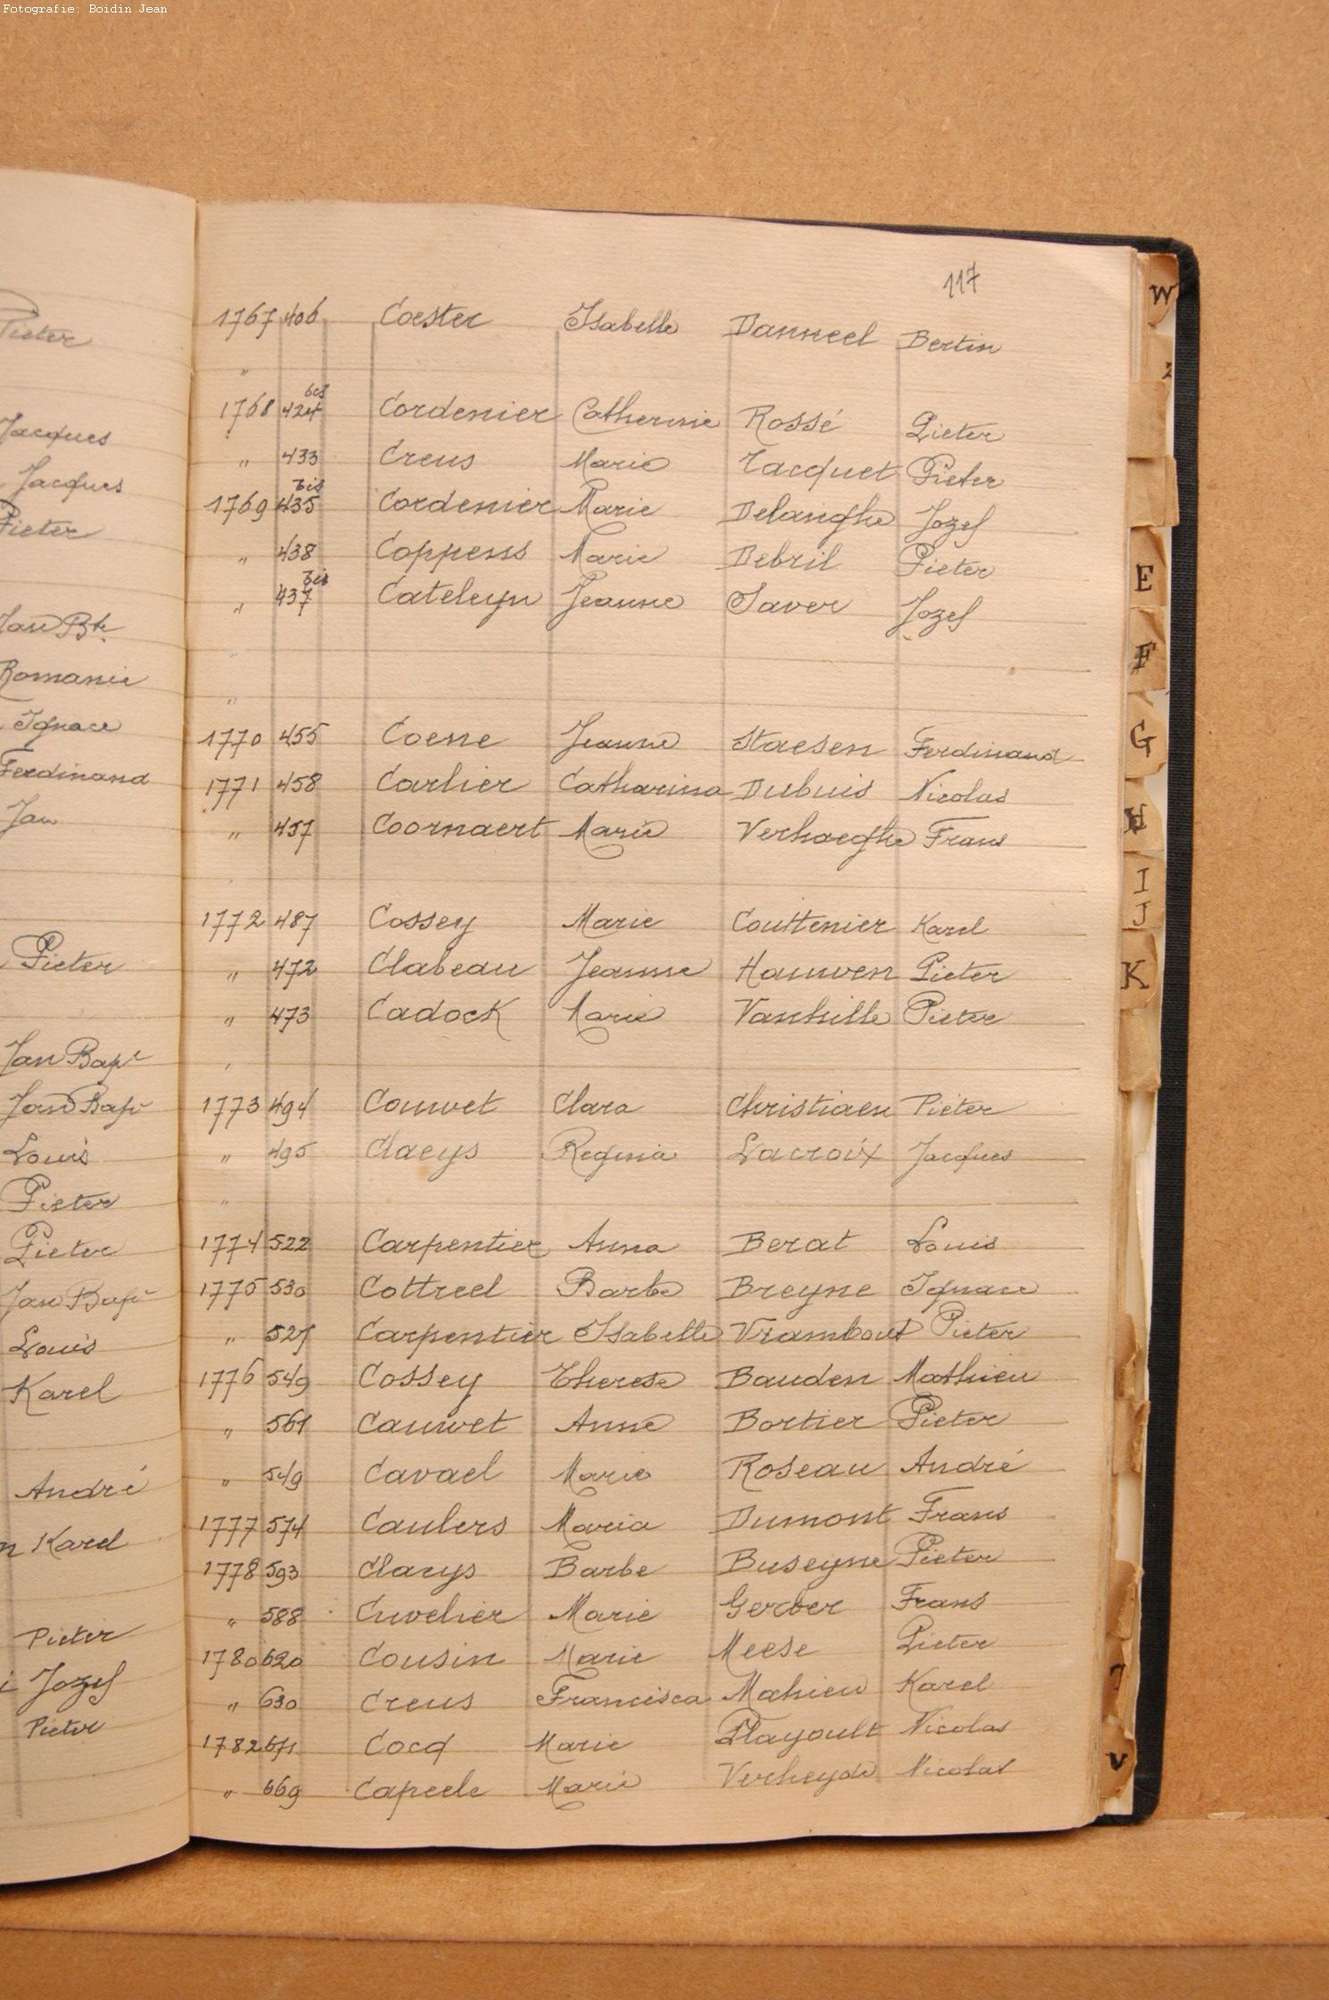 Fotografie: Boidin Jean
117
Pieter
Jacques
Jacques
Pieter
Jan Bte
Romanie
Ignace
Ferdinand
Jan
Pieter
Jan Bapt
Jan Bapt
Louis
Pieter
Pieter
Jan Bapt
Louis
Karel
André
n Karel
Pieter
Jozef
Pieter
1767 406 Coester Isabelle Danneel Bertin
"
1768 424 bis Cordenier Catherine Rossé Pieter
" 433 Creus Marie Tacquet Pieter
1769 435 bis Cordenier Marie Delanghe Jozef
" 438 Coppens Marie Debril Pieter
" 437 bis Cateleyn Jeanne Saver Jozef
"
"
1770 455 Coene Jeanne Staesen Ferdinand
1771 458 Carlier Catharina Dubuis Nicolas
" 457 Coornaert Marie Verhaeghe Frans
1772 487 Cossey Marie Couttenier Karel
" 472 Clabeau Jeanne Hauwen Pieter
" 473 Cadock Marie Vanhille Pieter
"
1773 494 Couwet Clara Christiaen Pieter
" 495 Claeys Regina Lacroix Jacques
"
1774 522 Carpentier Anna Berat Louis
1775 530 Cottreel Barbe Breyne Ignace
" 527 Carpentier Isabelle Vrambout Pieter
1776 549 Cossey Therese Bauden Mathieu
" 561 Cauwet Anne Bortier Pieter
" 549 Cavael Marie Roseau André
1777 574 Caulers Maria Dumont Frans
1778 593 Claeys Barbe Buseyne Pieter
" 588 Cuvelier Marie Gerber Frans
1780 620 Cousin Marie Meese Pieter
" 630 Creus Francisca Mahieu Karel
1782 671 Cocq Marie Playoult Nicolas
" 669 Capeele Marie Verheyde Nicolas
W
Z
E
F
G
H
I
J
K
V